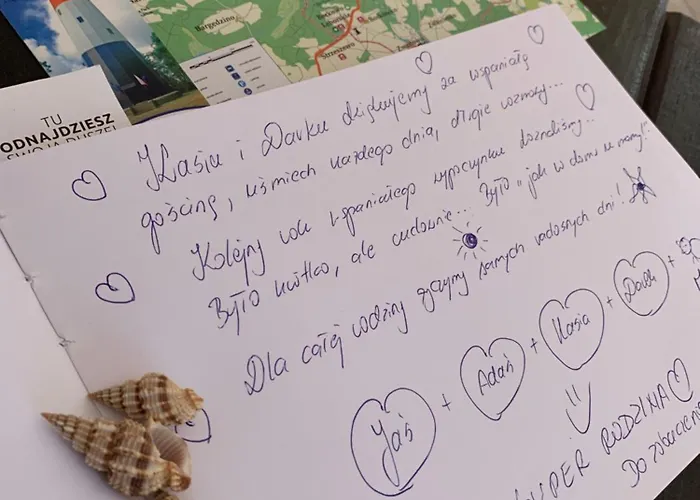 Bargędzino
Strzeszewo
TU
ODNAJDZIESZ
SWOJĄ DUSZĘ!
Kasiu i Darku dziękujemy za wspaniałą
gościnę, uśmiech każdego dnia, długie rozmowy...
Kolejny rok wspaniałego wypoczynku doznaliśmy..
Było krótko, ale cudownie... Było "jak w domu u mamy!"
Dla całej rodziny życzymy samych radosnych dni!
Jaś + Adaś + Kasia + Darek +
SUPER RODZINA
Do zobaczenia